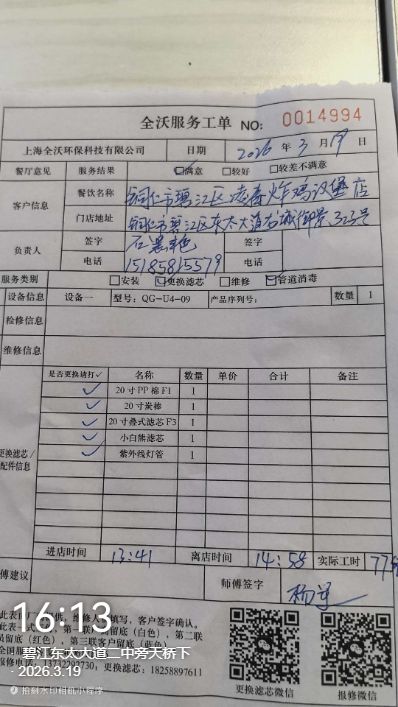 全沃服务工单 NO: 0014994
上海全沃环保科技有限公司 日期 2026 年 3 月 19
餐厅意见 服务结果 ☑满意 □较好 □较差不满意
客户信息 餐饮名称 铜仁市碧江区 炸鸡汉堡店
门店地址 铜仁市碧江区东太大道 323号
负责人 签字 石 签字
电话 15185815579 电话
服务类别 □安装 ☑更换滤芯 □维修 ☑管道消毒
设备信息 设备一 型号: QG-U4-09 产品序列号: 数量 1
检修信息
维修信息
是否更换请打✓ 名称 数量 单价 合计 备注
✓ 20寸PP棉F1 1
✓ 20寸炭棒 1
✓ 20寸叠式滤芯F3 1
✓ 小白熊滤芯 1
✓ 紫外线灯管 1
更换滤芯/
配件信息
进店时间 13:41 离店时间 14:58 实际工时 77
傅建议 师傅签字 杨
此表 填写, 客户签字确认。
此表 (白色), 第二联
员留底(红色), 第三联客户留底(蓝色)
报修电话: 13732293730, 更换滤芯: 18258897611
更换滤芯微信 报修微信
16:13
碧江东太大道二中旁天桥下
2026.3.19
拍刻水印相机小程序